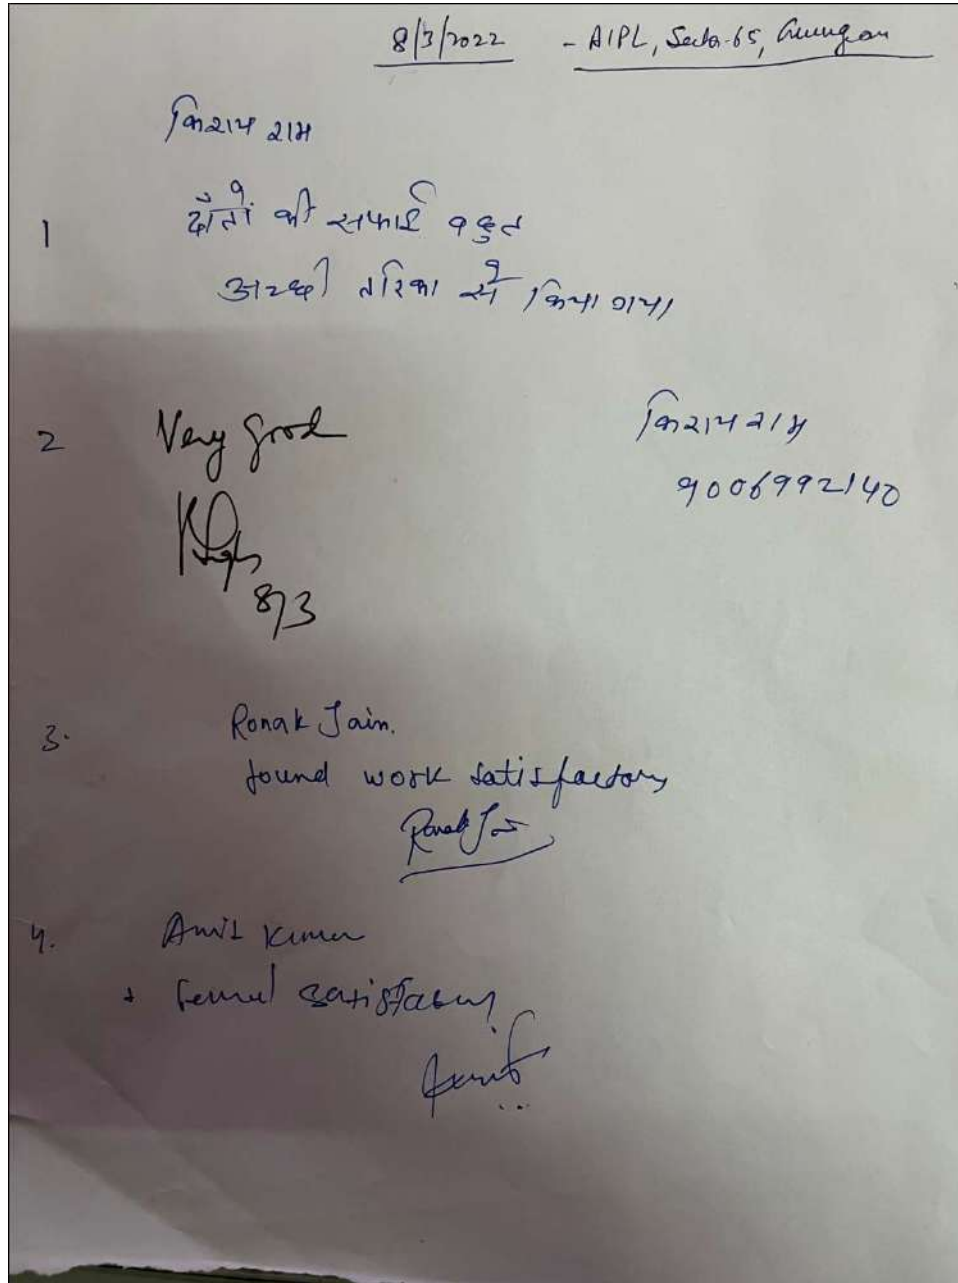 8/3/2022 - AIPL, Sector-65, Gurugram
किशन राम
1 दाँतों की सफाई बहुत
अच्छी तरिका से किया गया
2 Very good
किशन राम
9006992140
8/3
3. Ronak Jain.
found work satisfactory
Ronak Jain
4. Amit Kumar
satisfactory
Amit